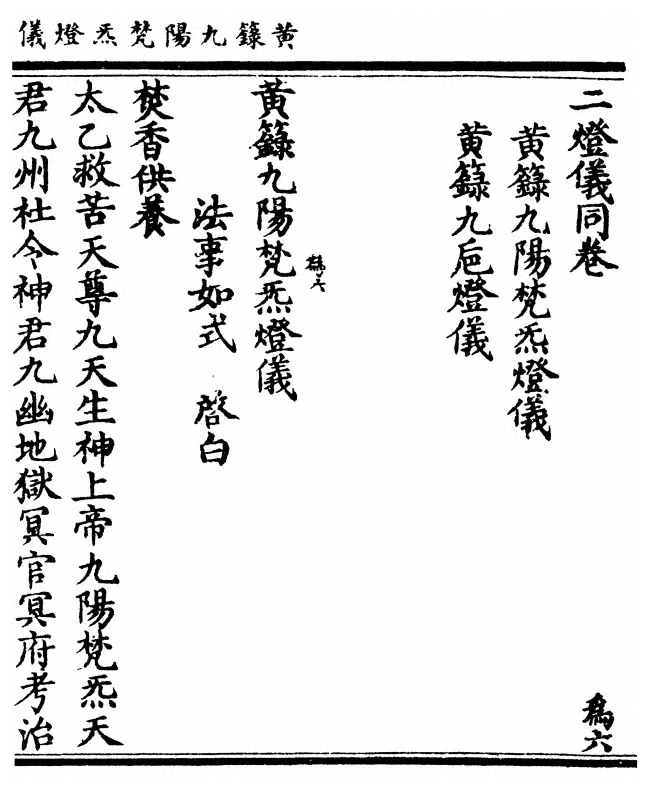 黄籙九陽梵炁燈儀
二燈儀同卷
為六
黄籙九陽梵炁燈儀
黄籙九卮燈儀
黄籙九陽梵炁燈儀
法事如式 啓白
焚香供養
太乙救苦天尊九天生神上帝九陽梵炁天
君九州社令神君九幽地獄冥官冥府考治